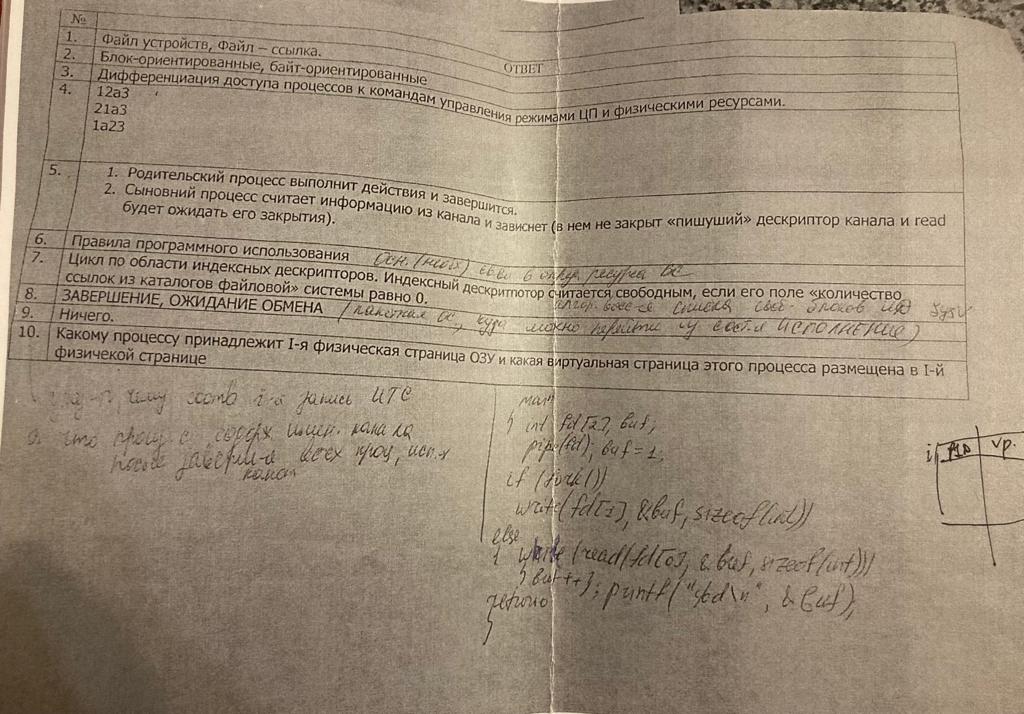 №
ОТВЕТ
1. Файл устройств, Файл – ссылка.
2. Блок-ориентированные, байт-ориентированные
3. Дифференциация доступа процессов к командам управления режимами ЦП и физическими ресурсами.
4. 12а3
21а3
1а23
5. 1. Родительский процесс выполнит действия и завершится.
2. Сыновний процесс считает информацию из канала и зависнет (в нем не закрыт «пишуший» дескриптор канала и read
будет ожидать его закрытия).
6. Правила программного использования
7. Цикл по области индексных дескрипторов. Индексный дескриптотор считается свободным, если его поле «количество
ссылок из каталогов файловой» системы равно 0.
8. ЗАВЕРШЕНИЕ, ОЖИДАНИЕ ОБМЕНА (пакетная ОС, куда можно перейти из сост-я ИСПОЛНЕНИЕ)
9. Ничего.
10. Какому процессу принадлежит I-я физическая страница ОЗУ и какая виртуальная страница этого процесса размещена в I-й
физичекой странице
чему соотв i-я запись ИТС
что произ. с содерж имен. канала
после заверш-я всех проц, исп-х
канал
main
{ int fd[2], buf;
pipe(fd); buf = 1;
if (fork())
write(fd[1], &buf, sizeof(int))
else
{ while (read(fd[0], &buf, sizeof(int)))
} buf++; printf("%d\n", &buf);
return 0
}
i PID vp.